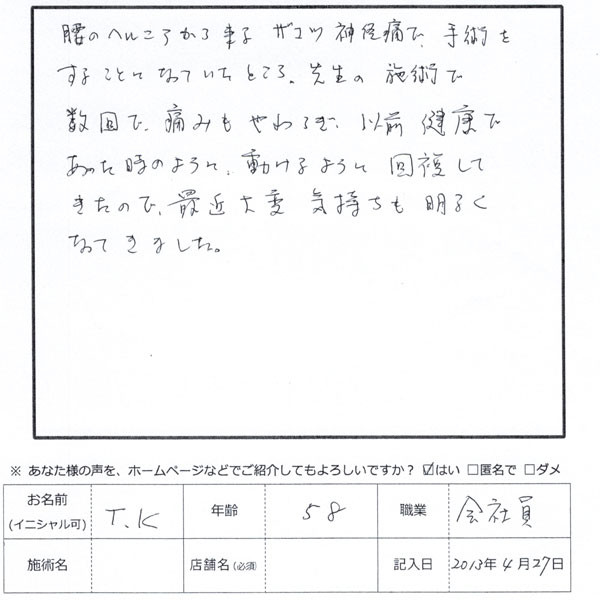 腰のヘルニアから来る ザコツ神経痛で、手術を
することになっていたところ、先生の 施術で
数回で、痛みも やわらぎ、以前 健康で
あった時のように、動けるように 回復して
きたので、最近大変 気持ちも 明るく
なってきました。
※ あなた様の声を、ホームページなどでご紹介してもよろしいですか？ ☑はい □匿名で □ダメ
お名前 (イニシャル可) T.K 年齢 58 職業 会社員
施術名 店舗名(必須) 記入日 2013年4月27日